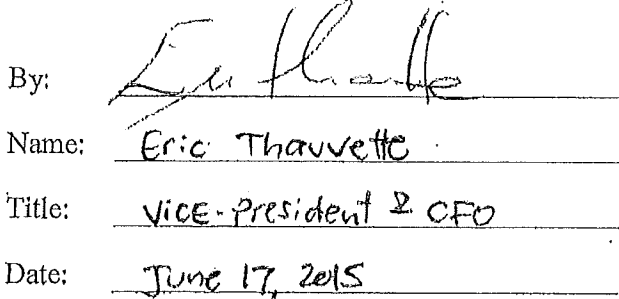 By:
Name: Eric Thauvette
Title: Vice-President & CFO
Date: June 17, 2015